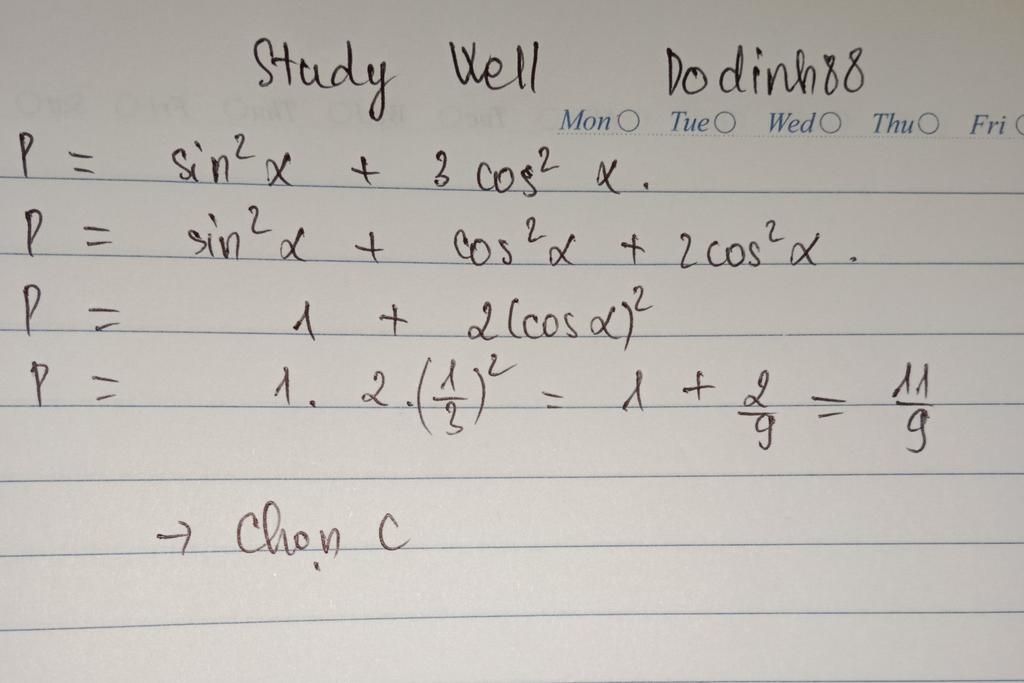 Study Well Dodinh88
Mon Tue Wed Thu Fri
P = sin²α + 3 cos² α.
P = sin²α + cos²α + 2cos²α.
P = 1 + 2(cosα)²
P = 1. 2.(1/3)² = 1 + 2/9 = 11/9
→ Chọn C